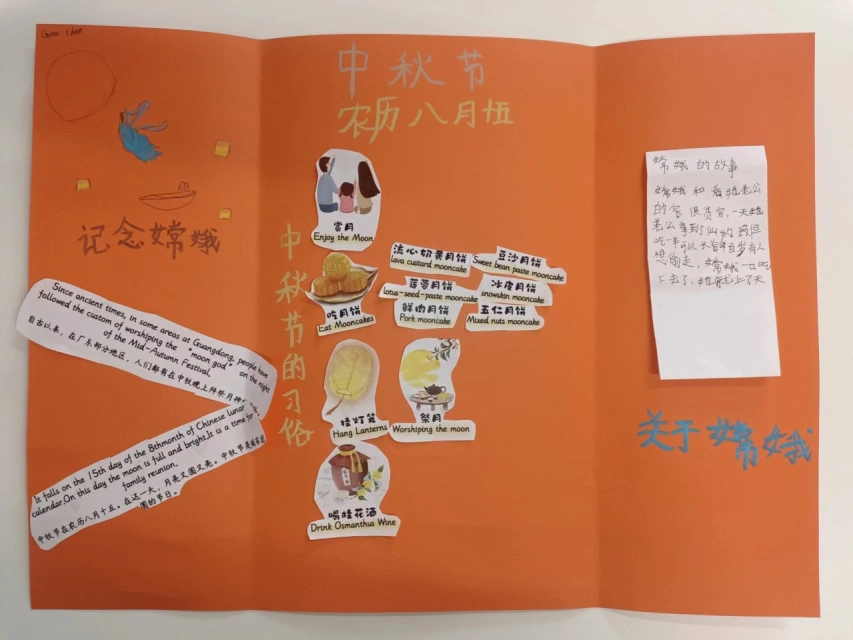 Gina
中秋节
农历八月十五
记念嫦娥
Since ancient times, in some areas at Guangdong, people have
followed the custom of worshiping the "moon god" on the night
of the Mid-Autumn Festival.
自古以来，在广东部分地区，人们都有在中秋晚上拜祭月神
It falls on the 15th day of the 8thmonth of Chinese lunar
calendar.On this day the moon is full and bright.It is a time for
family reunion.
中秋节在农历八月十五。在这一天，月亮又圆又亮。中秋节是家家团
圆的节日。
中秋节的习俗
赏月
Enjoy the Moon
吃月饼
Eat Mooncakes
流心奶黄月饼
lava custard mooncake
豆沙月饼
Sweet bean paste mooncake
莲蓉月饼
lotus-seed-paste mooncake
冰皮月饼
snowskin mooncake
鲜肉月饼
Pork mooncake
五仁月饼
Mixed nuts mooncake
挂灯笼
Hang Lanterns
祭月
Worshiping the moon
喝桂花酒
Drink Osmanthus Wine
嫦娥的故事
嫦娥和 她老公
的家很贫穷,一天她
老公拿到了仙药 但
吃一 可以长 百岁有人
想偷走,嫦娥一口吃
下去了,她 上了天
关于嫦娥